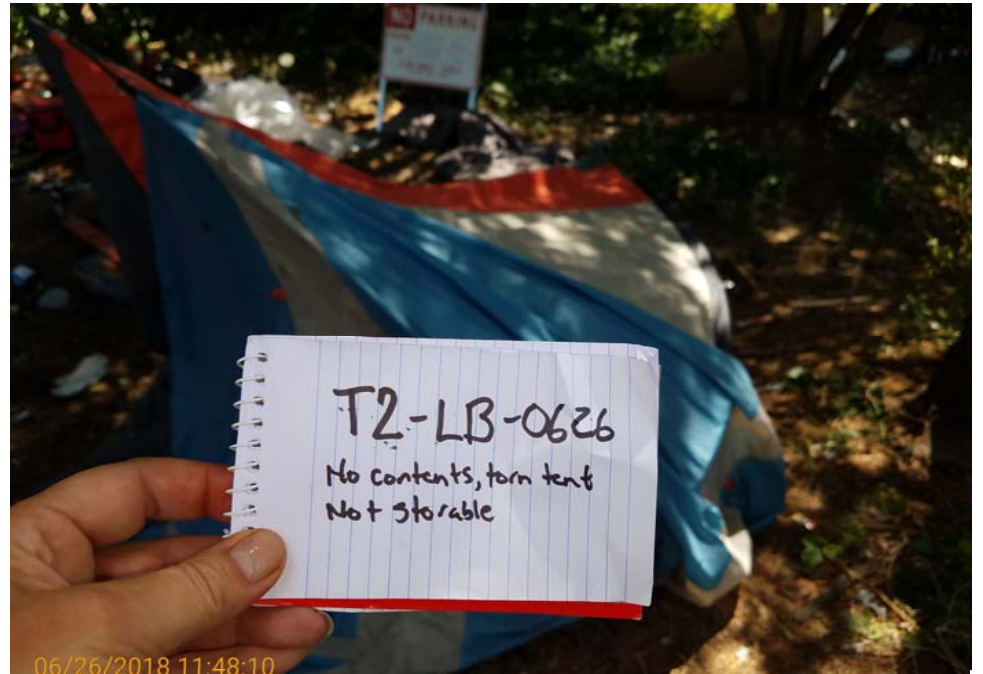 NO PARKING
T2-LB-0626
No contents, torn tent
Not storable
06/26/2018 11:48:10